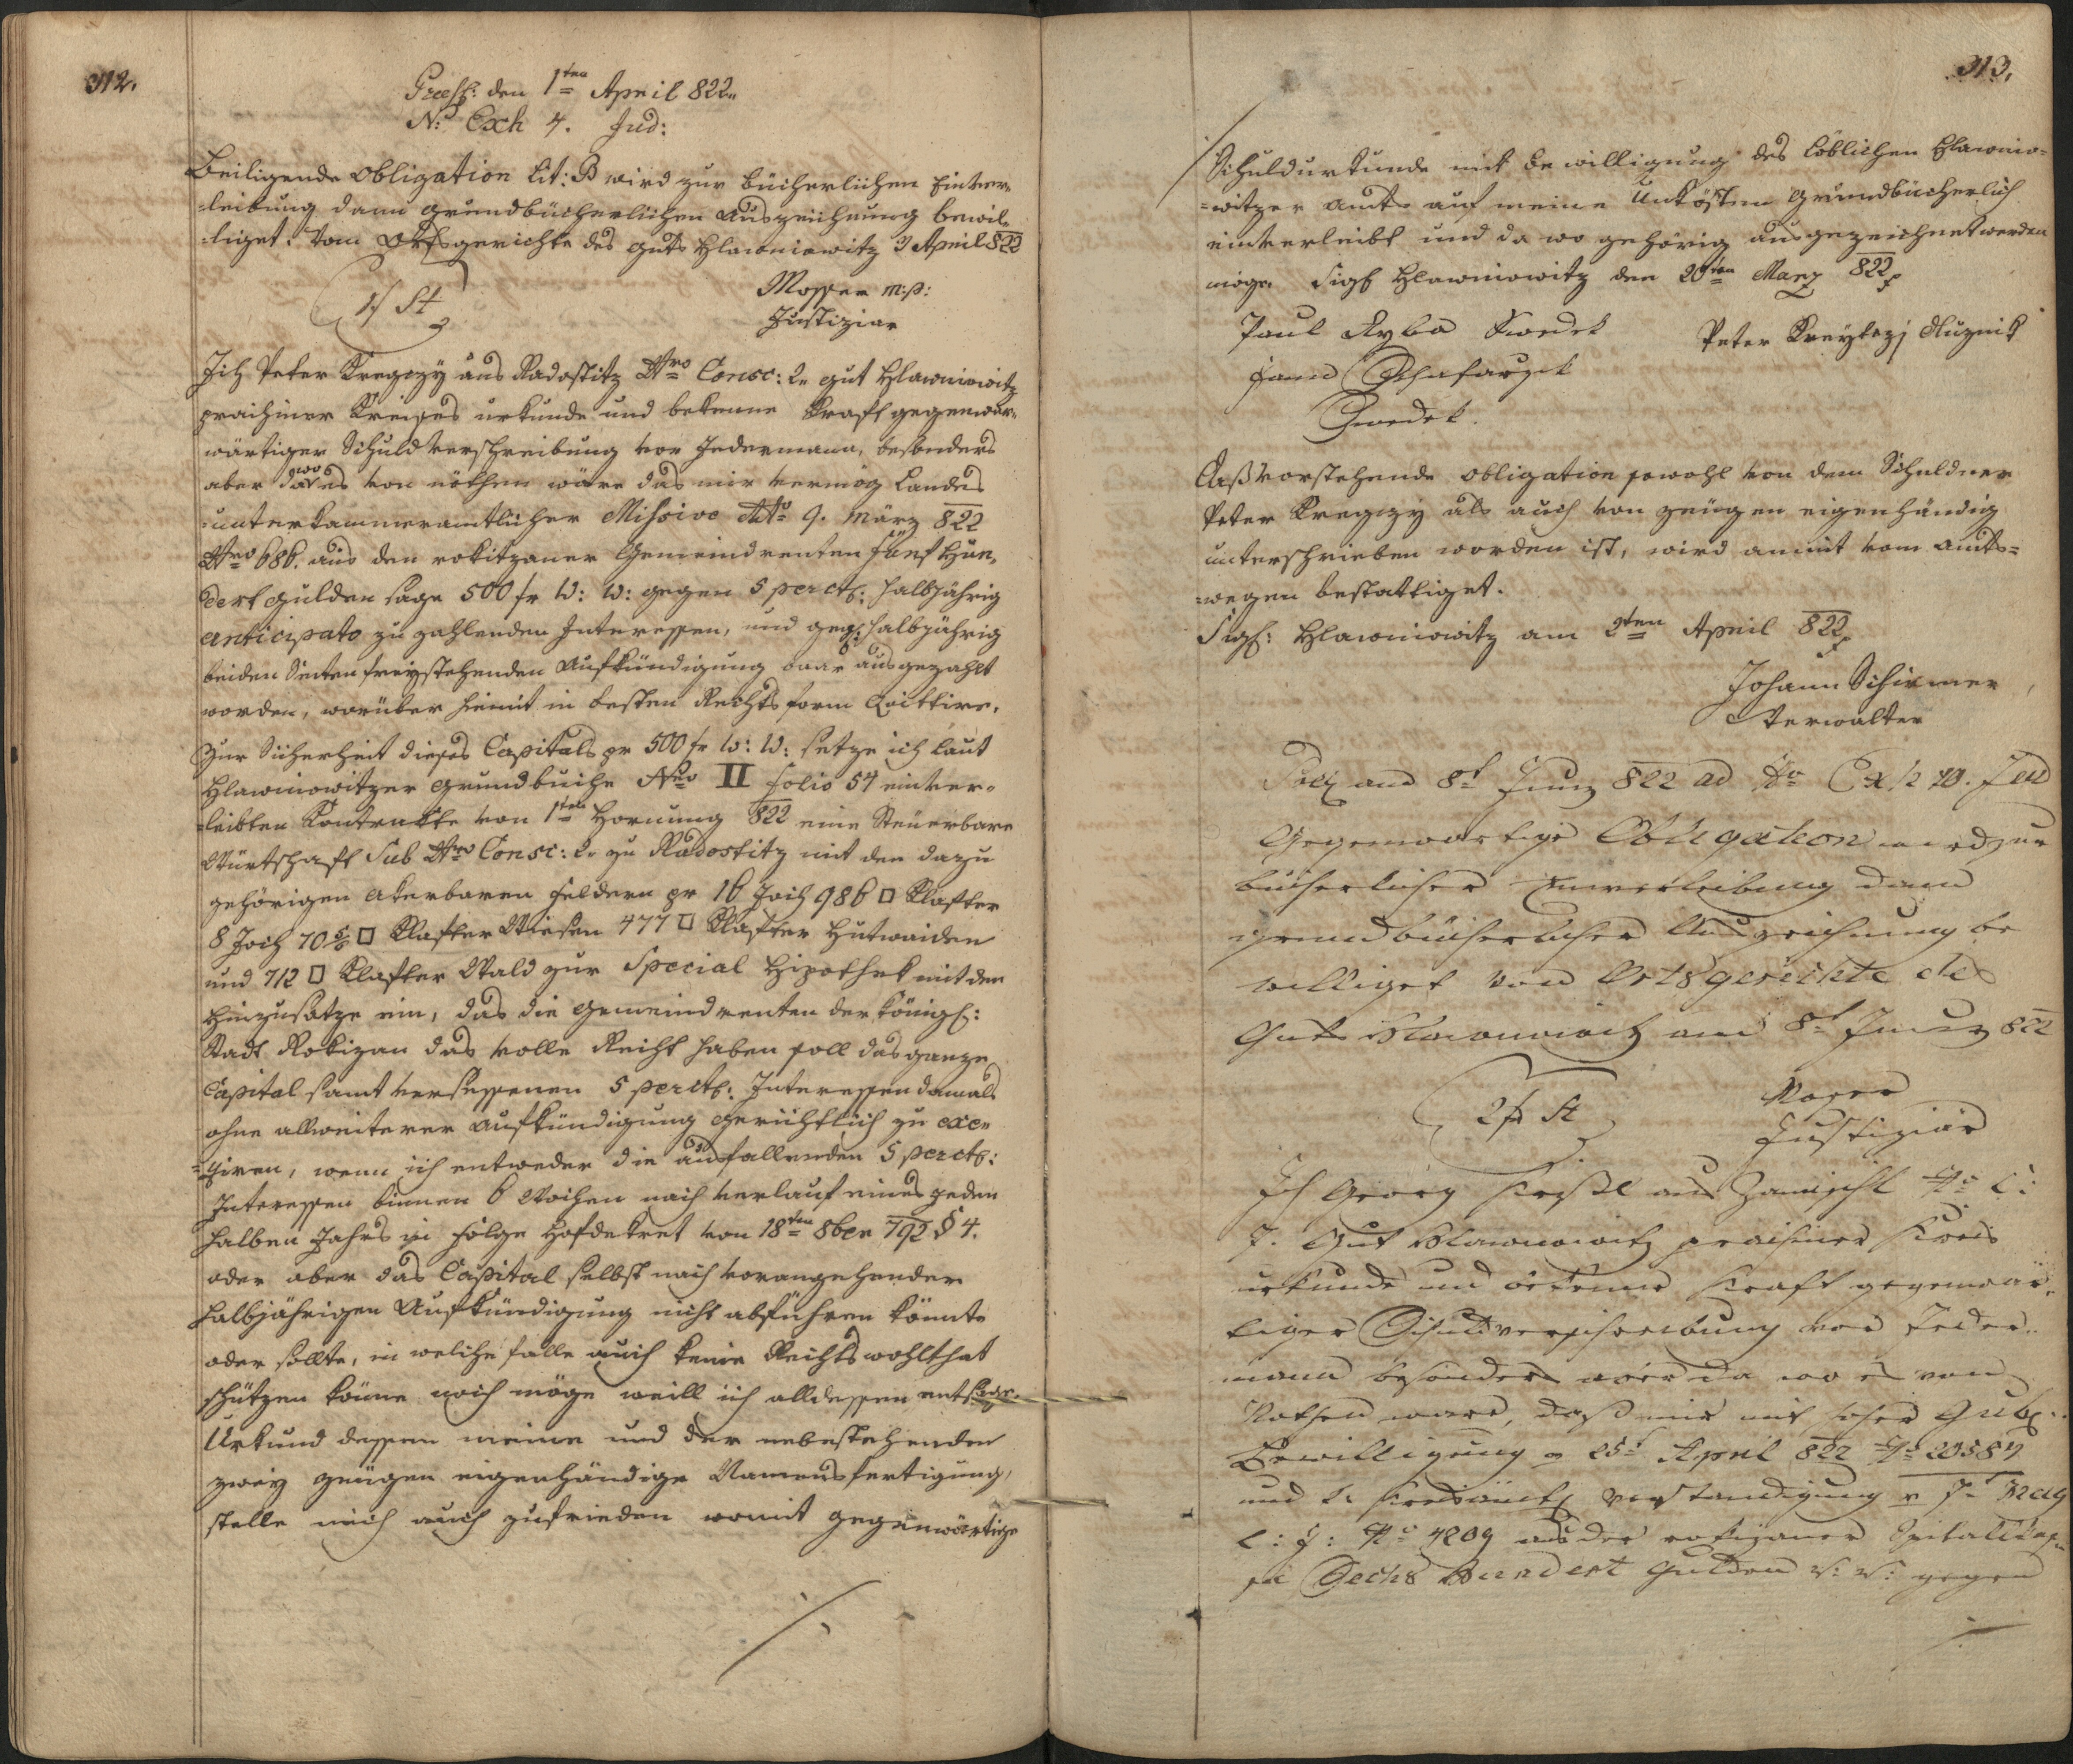 312.
Præs: den 1ten April 822.
N: Exh 4. Jud:
Beiligende Obligation Lit: B wird zur bücherlichen Einver-
-leibung dann grundbücherlichen Auszeichnung bewil-
-liget. Vom Ortsgerichte des Guts Hlawniowitz 3 April 822
Mosser m:p:
Justiziar
Ich Peter Kregczy aus Radostitz Nro Consc: 2. gut Hlawniowitz
prachiner Kreises urkunde und bekenne Kraft gegenwär-
wärtiger Schuldverschreibung vor Jedermann, besonders
aber da wo es von nöthen wäre das mir vermög Landes
-unterkammeramtlicher Missive dto 9. März 822
Nro 686. aus den rokitzaner Gemeindrenten fünf Hun-
dert gulden sage 500 fr W: W: gegen 5 perct: halbjährig
anticipato zu zahlenden Interessen, und geg: halbjährig
beiden Seiten freystehenden Aufkündigung baar ausgezahlt
worden, worüber hiemit in besten Rechtsform Quittire.
Zur Sicherheit dieses Capitals pr 500 fr W: W: setze ich laut
Hlawniowitzer Grundbuche Nro II folio 54 einver-
-leibten Kontrakte von 1ten Hornung 822 eine Steuerbare
Würtschaft Sub Nro Consc: 2. zu Radostitz mit den dazu
gehörigen akerbaren Feldern pr 16 Joch 986 □ Klafter
8 Joch 70 □ Klafter Wiesen 477 □ Klafter Hutwaiden
und 712 □ Klafter Wald zur Special Hipothek mit den
Hinzusatze ein, das die Gemeindrenten der königl:
Stadt Rokizan das volle Recht haben soll das ganze
Capital samt versessenen 5 perct: Interessen damals
ohne allweiterer Aufkündigung gerichtlich zu exe-
-giren, wenn ich entweder die ausfallenden 5 perct:
Interessen binnen 6 Wochen nach verlauf eines jeden
halben Jahrs in folge Hofdekret von 18ten 8ber 792 § 4.
oder aber das Capital selbst nach vorangehender
halbjährigen Aufkündigung nicht abführen könnte
oder sollte, in welche falle auch keine Rechtswohlthat
schützen könne noch möge weill ich alldessen entsage.
Urkund dessen meine und der nebestehenden
zwey zeugen eigenhändige Namensfertigung,
stelle mich auch zufrieden womit gegenwärtige
313.
Schuldurkunde mit bewilligung des löblichen Hlawnio-
-witzer Amts auf meine Unkösten Grundbücherlich
einverleibt und da wo gehörig ausgezeichnet werden
möge. Sigl Hlawniowitz den 20ten März 822
Paul Ryba Swedek
Peter Kreytczj dluznik
Jann Schafarzik
Swedek.
Daß vorstehende obligation sowohl von dem Schuldner
Peter Kregczy als auch von zeugen eigenhändig
unterschrieben worden ist, wird anmit vom Amts-
-wegen bestattiget.
Sigl: Hlawniowitz am 2ten April 822
Johann Schirmer
Verwalter
8t Juny 822 ad No Exh 10. Jud
Gegenwärtige Obligation wird zur
bücherlicher Einverleibung dann
grundbücherlicher Auszeichnung be
williget vom Ortsgerichte des
Guts Hlawniowitz am 8t Juny 822
Moser
Justiziär
Ich Georg aus No C:
7. Gut Hlawniowitz prachiner Kreis
urkunde und bekenne Kraft gegenwär-
tiger Schuldverschreibung vor Jeder-
mann besonders aber da wo es von
Nothen ware, daß mir mit hoher Gub:
Bewilligung 25t April 822 No 20587
und k. Kreisämtl Verstandigung 7t May
l: J: No 4209 aus der rokizaner Spitalskas-
sa Sechs Hundert Gulden W: W: gegen